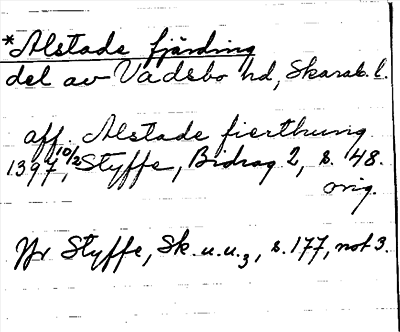 *Alstade fjärding
del av Vadsbo hd, Skarab. l.
aff Alstade fierthung
1397 10/2, Styffe, Bidrag 2, s. 48.
orig.
Jfr Styffe, Sk. u. u. 3, s. 177, not 3.